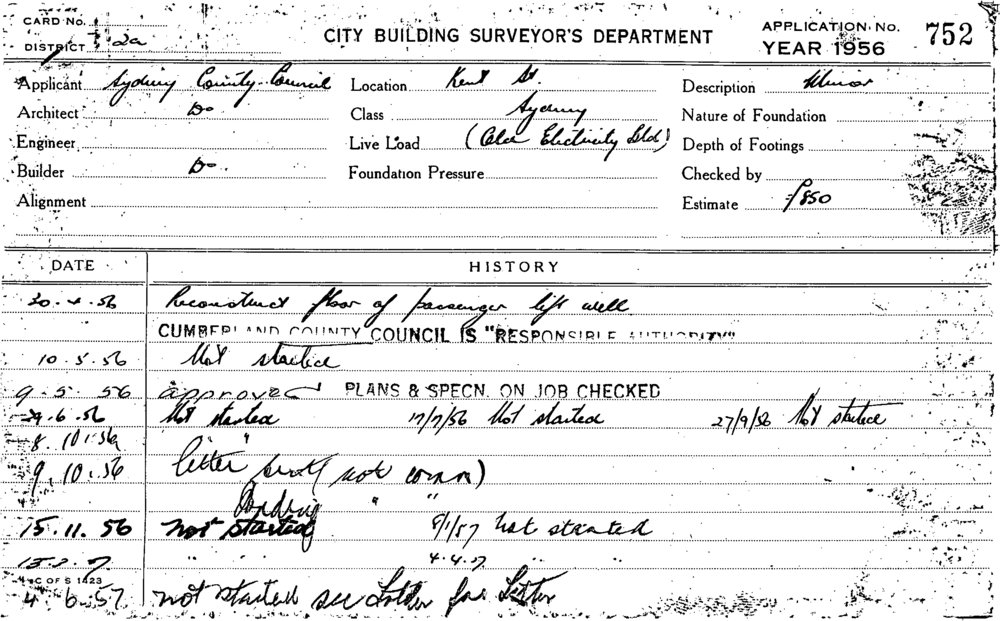 CARD No.
DISTRICT 2a
CITY BUILDING SURVEYOR'S DEPARTMENT
APPLICATION No. 752
YEAR 1956
Applicant Sydney County Council
Location Kent St.
Description Minor
Architect Do
Class Sydney
Nature of Foundation
Engineer
Live Load (Old Electricity Bld)
Depth of Footings
Builder Do
Foundation Pressure
Checked by
Alignment
Estimate £850
DATE HISTORY
30.4.56 Reconstruct floor of passenger lift well
CUMBERLAND COUNTY COUNCIL IS "RESPONSIBLE AUTHORITY"
10.5.56 Not started
9.5.56 approved PLANS & SPECN. ON JOB CHECKED
29.6.56 Not started 17/7/56 Not started 27/9/56 Not started
8.10.56 " "
9.10.56 letter sent (not comm)
" "
15.11.56 not started 8/1/57 not started
" " 4.4.57 " "
C OF S 1423
4.6.57 not started see Letter for Letter